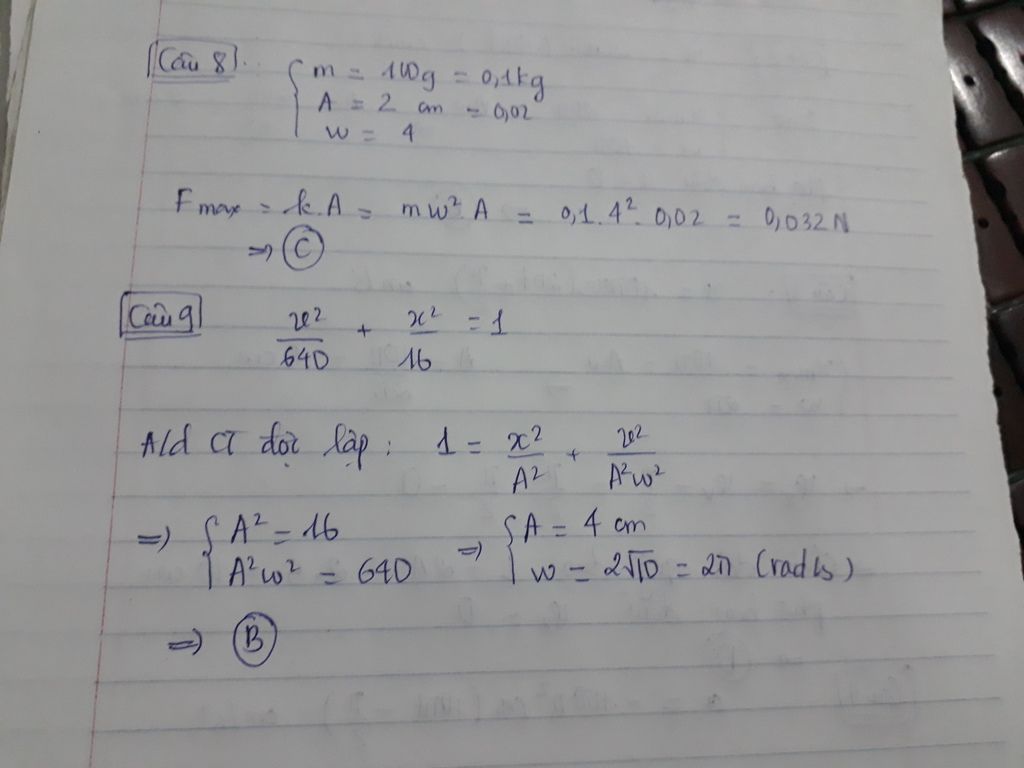 Câu 8.
m = 100g = 0,1kg
A = 2 cm = 0,02
w = 4
Fmax = k.A = mw².A = 0,1.4².0,02 = 0,032N
=> C
Câu 9
v²/640 + x²/16 = 1
A/d CT độc lập: 1 = x²/A² + v²/A²w²
=> { A² = 16 => { A = 4 cm
A²w² = 640 w = 2√10 = 2π (rad/s)
=> B